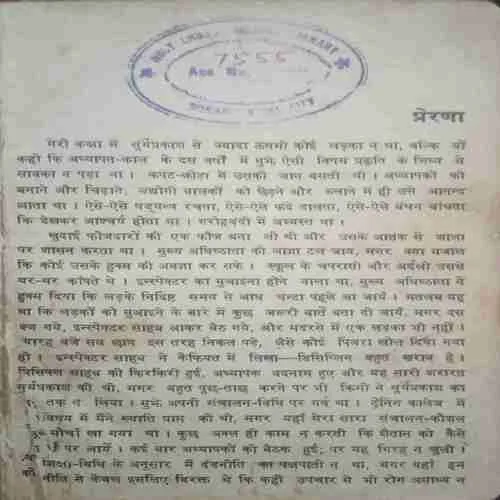 7555
Acc No.
प्रेरणा
मेरी कक्षा में सूर्यप्रकाश से ज्यादा ऊधमी कोई लड़का न था, बल्कि यों
कहो कि अध्यापन-काल के दस वर्षों में मुझे ऐसी विषम प्रकृति के शिष्य से
साबका न पड़ा था। कपट-क्रीड़ा में उसकी जान बसती थी। अध्यापकों को
बनाने और चिढ़ाने, उद्योगी बालकों को छेड़ने और रुलाने में ही उसे आनन्द
आता था। ऐसे-ऐसे षड्यन्त्र रचता, ऐसे-ऐसे फंदे डालता, ऐसे-ऐसे बंधन बांधता
कि देखकर आश्चर्य होता था। गरोहबंदी में अभ्यस्त था।
खुदाई फौजदारों की एक फौज बना ली थी और उसके आतंक से शाला
पर शासन करता था। मुख्य अधिष्ठाता की आज्ञा टल जाय, मगर क्या मजाल
कि कोई उसके हुक्म की अवज्ञा कर सके। स्कूल के चपरासी और अर्दली उससे
थर-थर कांपते थे। इन्स्पेक्टर का मुआइना होने वाला था, मुख्य अधिष्ठाता ने
हुक्म दिया कि लड़के निर्दिष्ट समय से आध घन्टा पहले आ जायें। मतलब यह
था कि लड़कों को मुआइने के बारे में कुछ जरूरी बातें बता दी जायें, मगर दस
बज गये, इन्स्पेक्टर साहब आकर बैठ गये, और मदरसे में एक लड़का भी नहीं।
ग्यारह बजे सब छात्र इस तरह निकल पड़े, जैसे कोई पिंजरा खोल दिया गया
हो। इन्स्पेक्टर साहब ने कैफियत में लिखा—डिसिप्लिन बहुत खराब है।
प्रिंसिपल साहब की किरकिरी हुई, अध्यापक बदनाम हुए और यह सारी शरारत
सूर्यप्रकाश की थी, मगर बहुत पूछ-ताछ करने पर भी किसी ने सूर्यप्रकाश का
तक न लिया। मुझे अपनी संचालन-विधि पर गर्व था। ट्रेनिंग कालेज में
विषय में मैंने ख्याति प्राप्त की थी, मगर यहाँ मेरा सारा संचालन-कौशल
मोर्चा खा गया था। कुछ अक्ल ही काम न करती कि शैतान को कैसे
पर लायें। कई बार अध्यापकों की बैठक हुई, पर यह गिरह न खुली।
शिक्षा-विधि के अनुसार मैं दंडनीति का पक्षपाती न था, मगर यहाँ इन
नीति से केवल इसलिए विरक्त थे कि कहीं उपचार से भी रोग असाध्य न